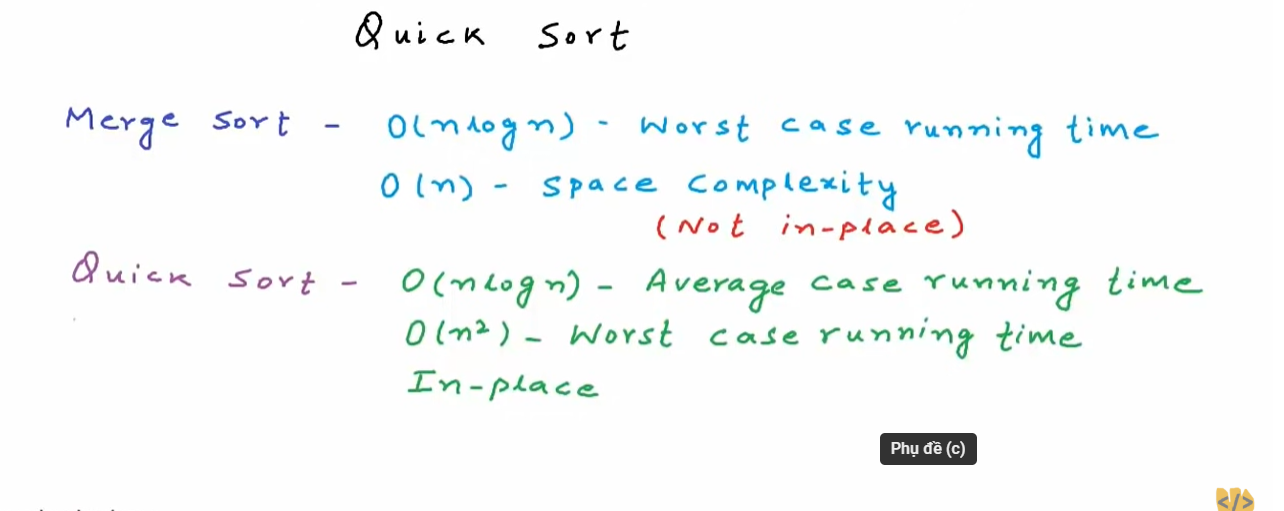 Quick Sort
Merge sort - O(nlogn) - Worst case running time
O(n) - space complexity
(Not in-place)
Quick sort - O(nlogn) - Average case running time
O(n²) - Worst case running time
In-place
Phụ đề (c)
</>